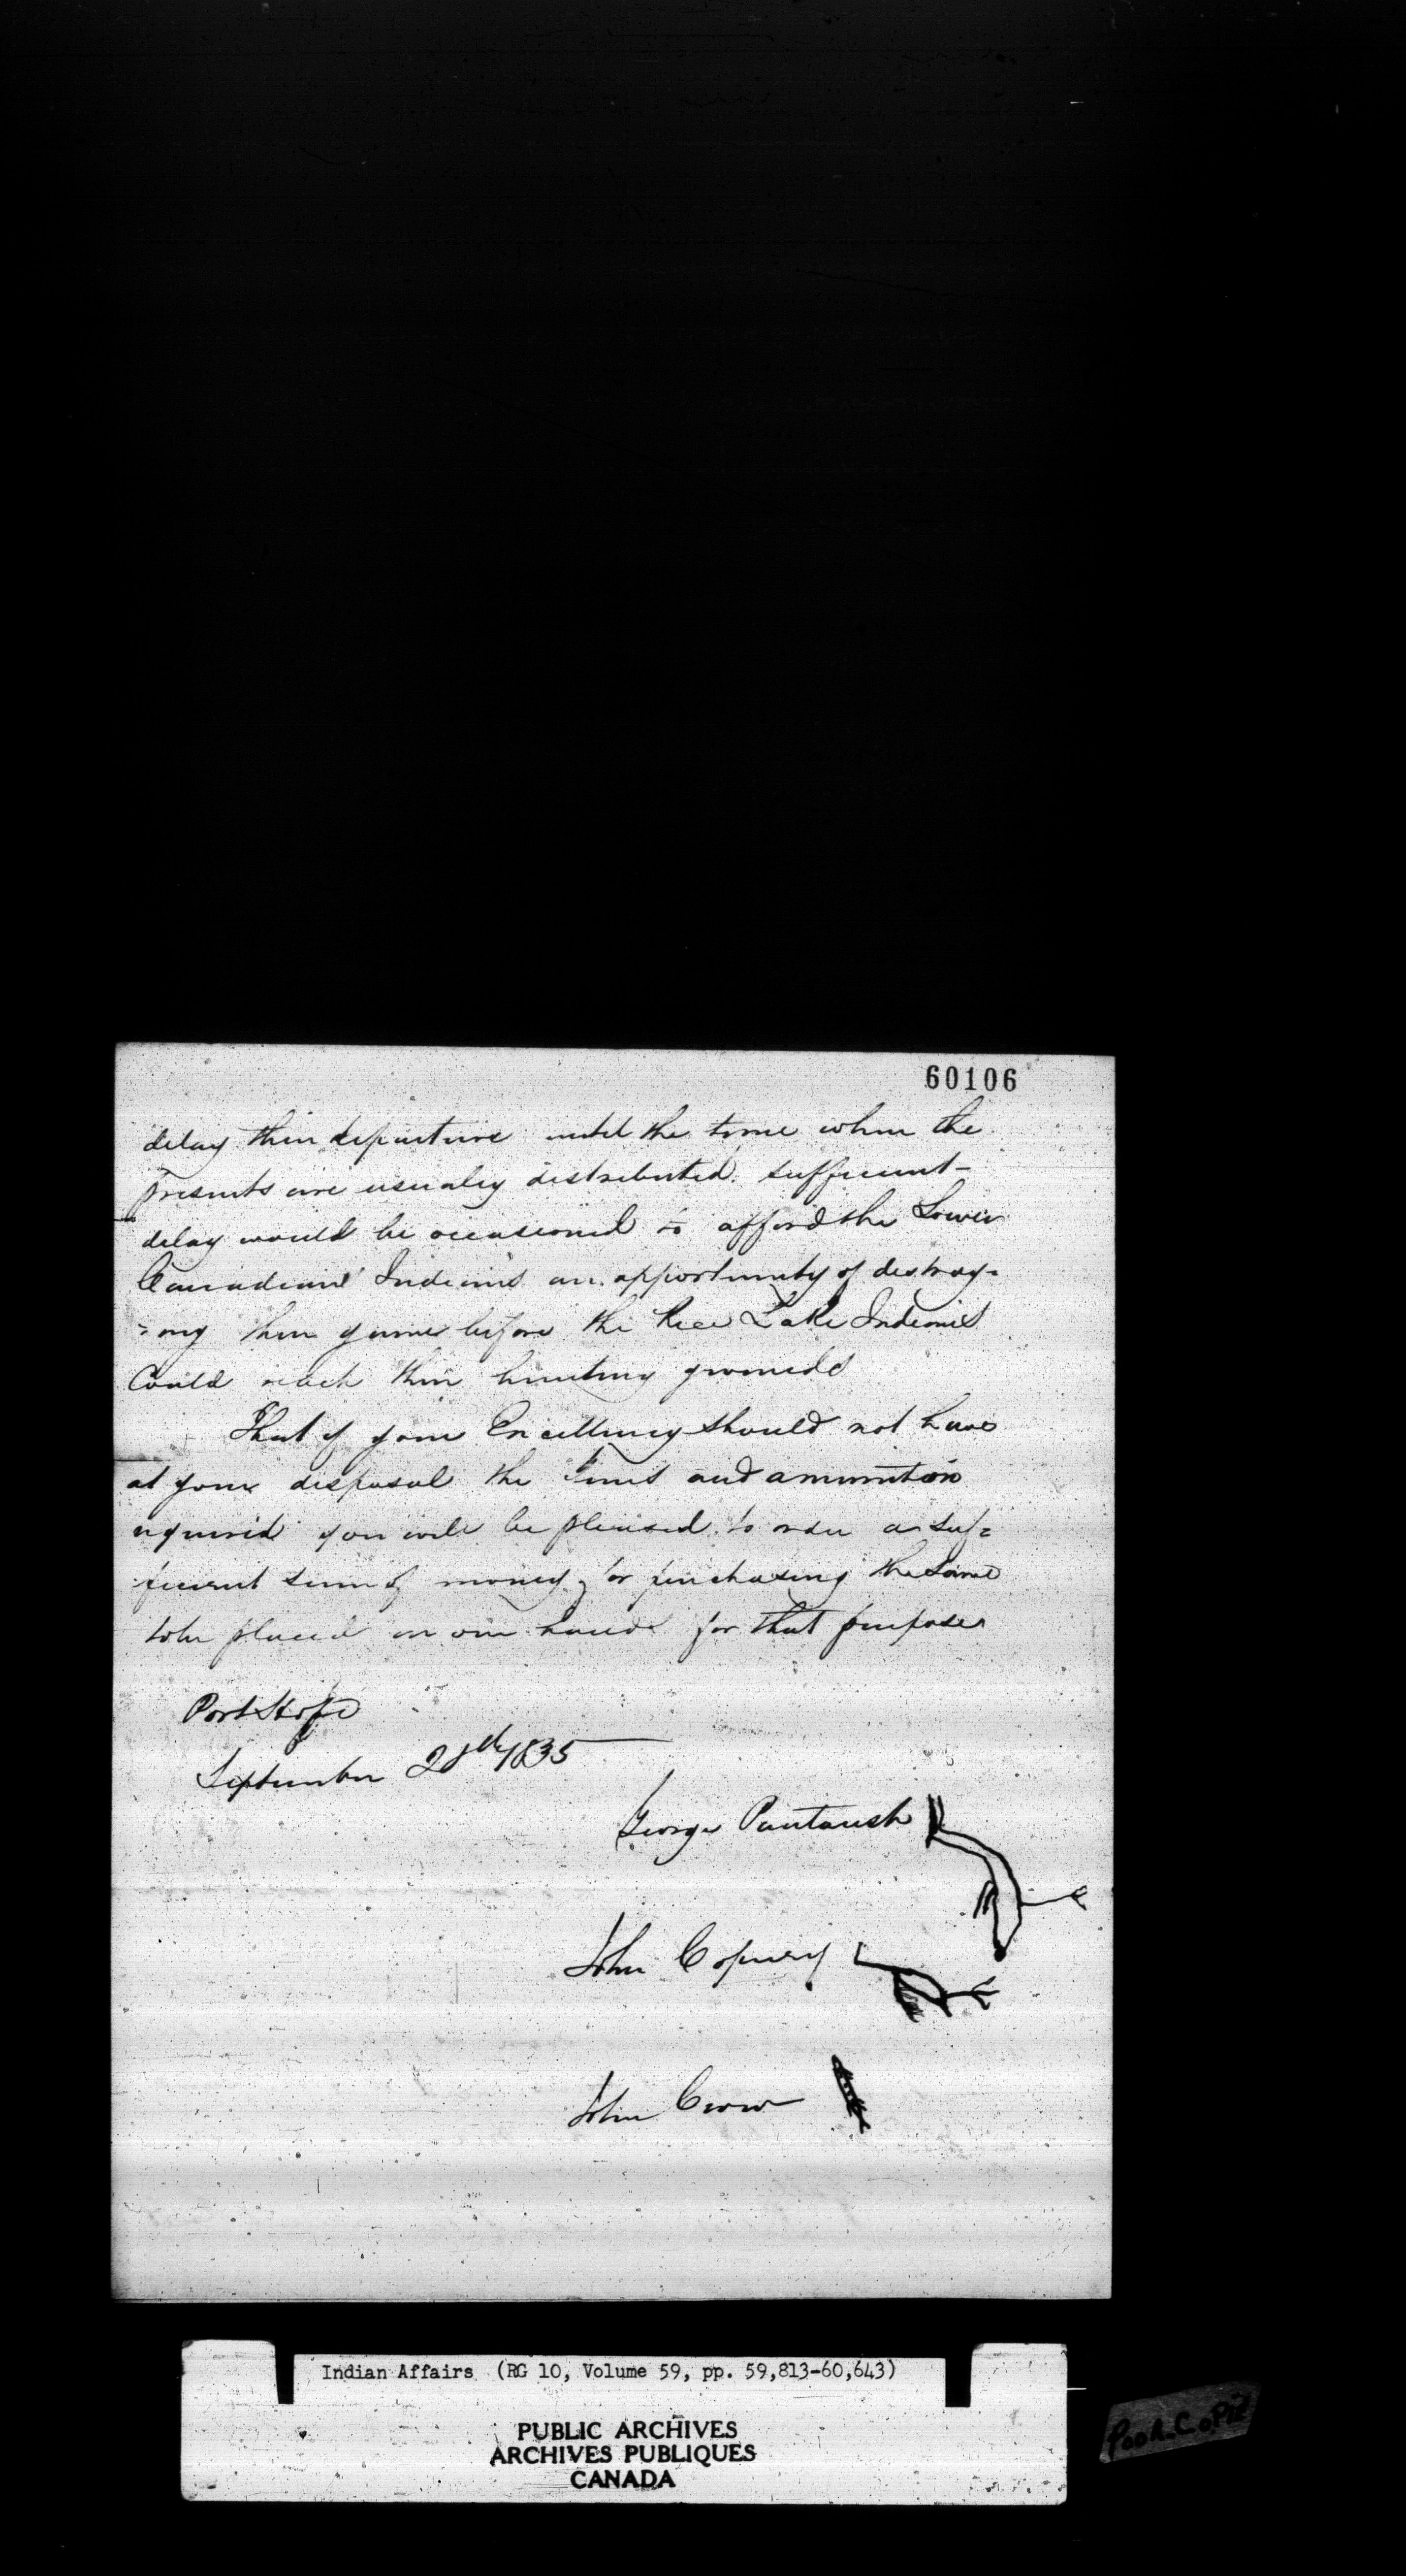 60106
delay their departure until the time when the
presents are usualey distributed. sufficient
delay would be occasioned to afford the Lower
Canadian Indians an opportunity of destroy-
=ing their game before the Rice Lake Indians
Could reach their hunting grounds
That if your Excellency should not have
at your disposal the and ammunition
required you will be pleased to order a suf=
ficient sum of money for purchasing the same
to be placed in our hands for that purpose
Port Hope
September 28th 1835
George Pautaush
John Copwey
John Crow
Indian Affairs (RG 10, Volume 59, pp. 59,813-60,643)
PUBLIC ARCHIVES
ARCHIVES PUBLIQUES
CANADA
POOR COPIE